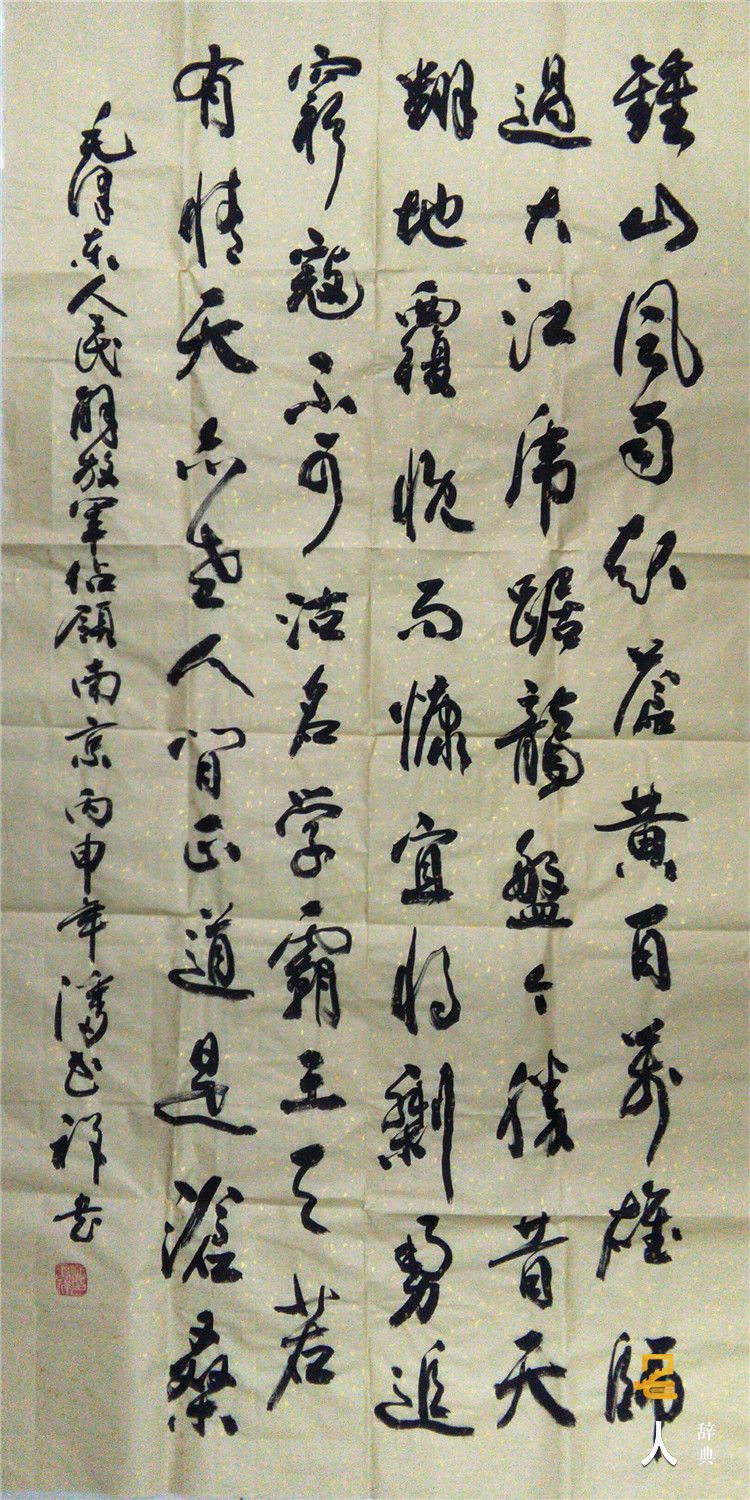 鍾山风雨起蒼黄百萬雄師
過大江虎踞龍盤今勝昔天
翻地覆慨而慷宜将剩勇追
窮寇不可沽名学霸王天若
有情天亦老人间正道是滄桑
毛泽东人民解放军佔領南京丙申年潘祥书
名人
辞典